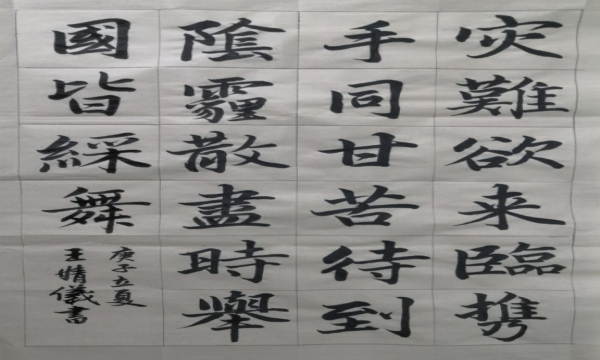 灾難欲来臨携
手同甘苦待到
陰霾散盡時舉
國皆綵舞
庚子立夏
王婧儀書